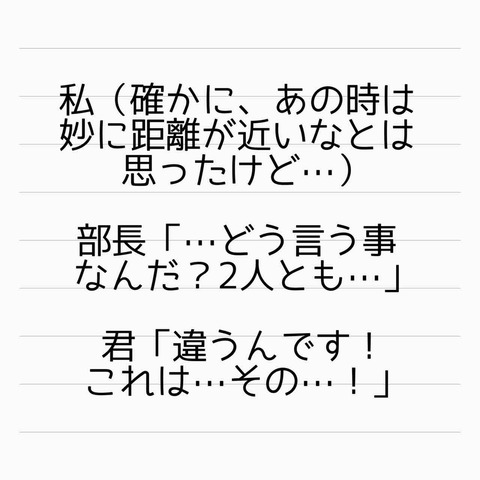 私（確かに、あの時は
妙に距離が近いなとは
思ったけど…）
部長「…どう言う事
なんだ？2人とも…」
君「違うんです！
これは…その…！」